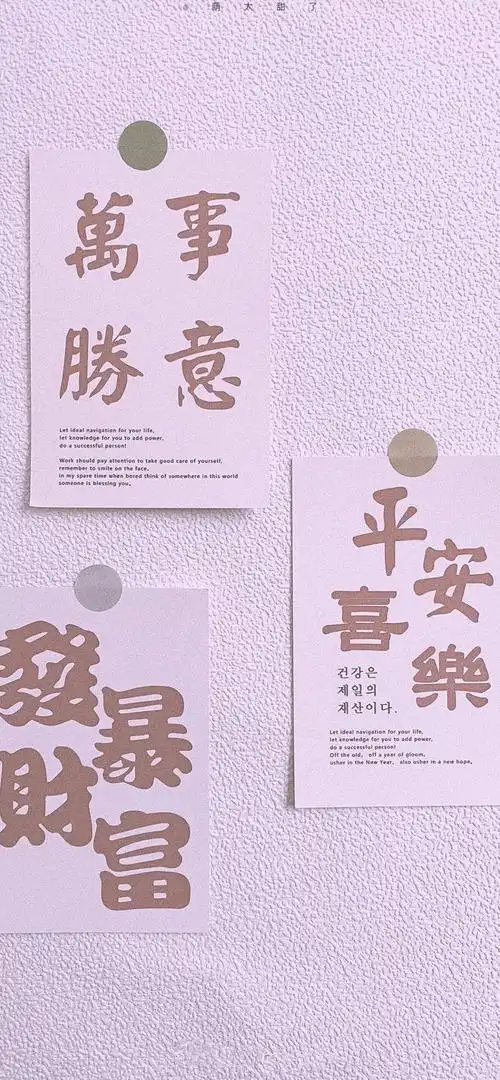 萌太甜了
萬事
勝意
Let ideal navigation for your life,
let knowledge for you to add power,
do a successful person!
Work should pay attention to take good care of yourself,
remember to smile on the face,
in my spare time when bored think of somewhere in this world
someone is blessing you。
平安
喜樂
건강은
제일의
재산이다.
Let ideal navigation for your life,
let knowledge for you to add power,
do a successful person!
Off the old, off a year of gloom,
usher in the New Year, also usher in a new hope。
發財
暴富